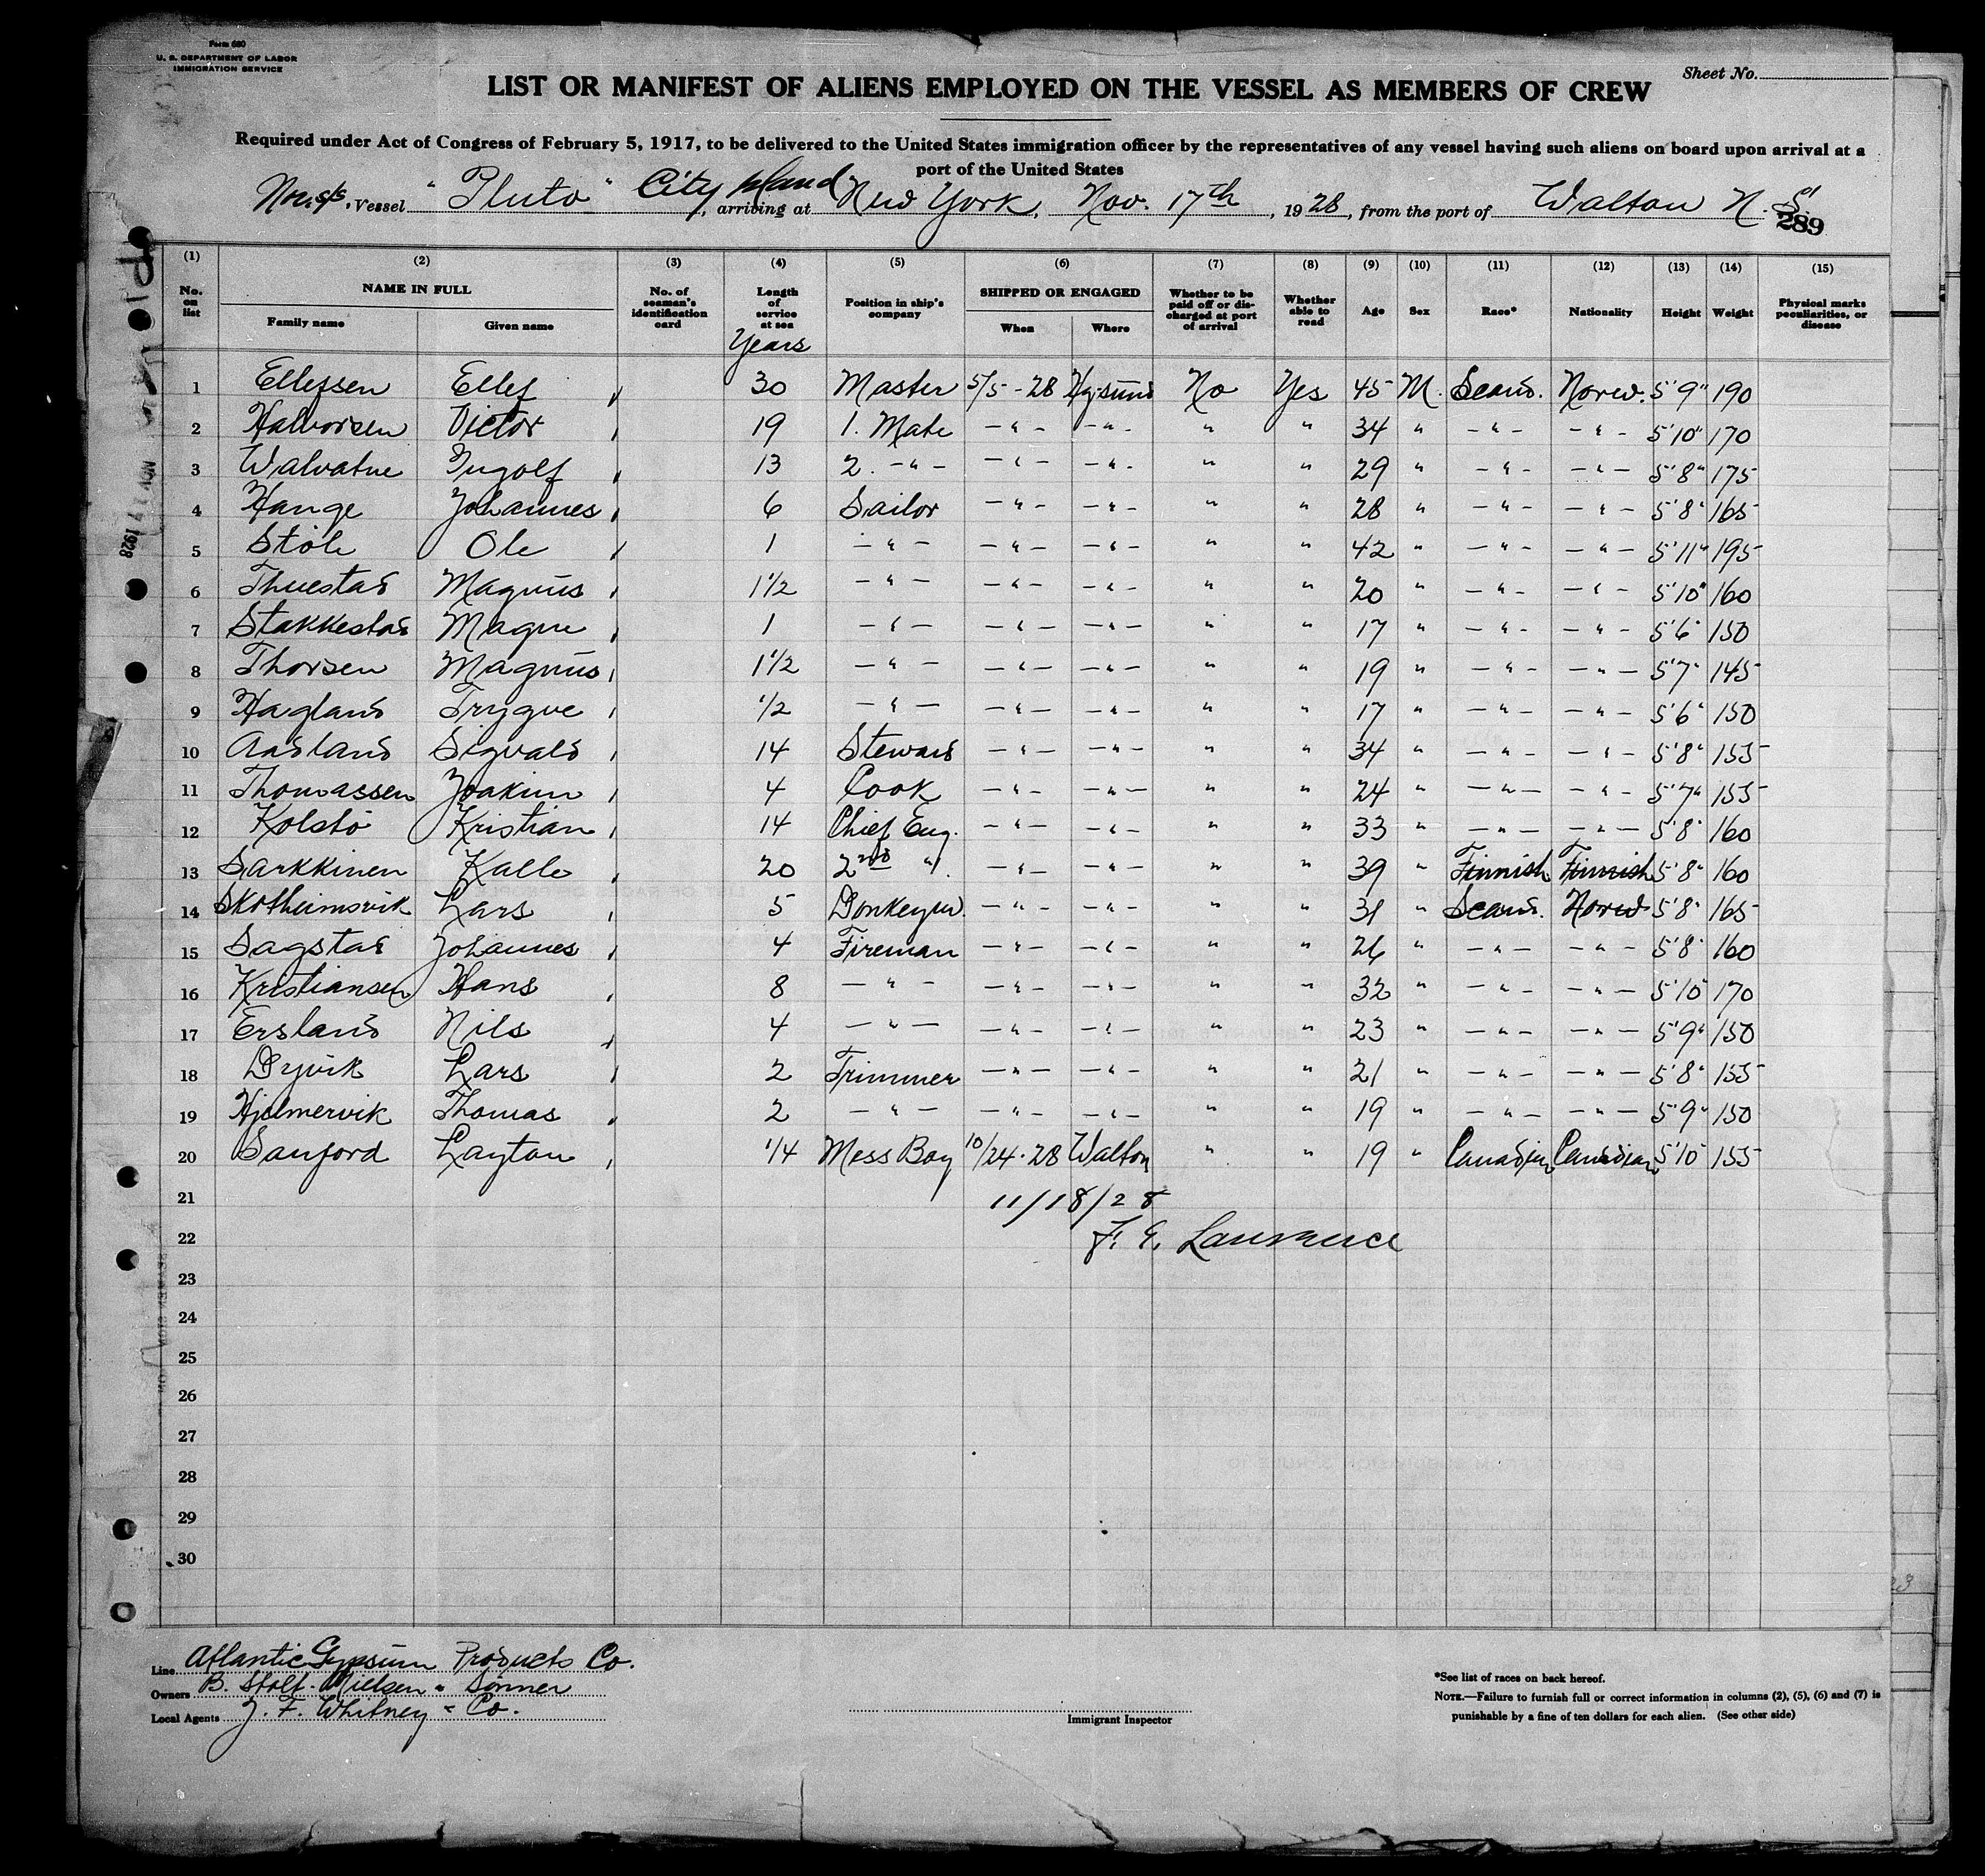 Form 680
U. S. DEPARTMENT OF LABOR
IMMIGRATION SERVICE
Sheet No.
LIST OR MANIFEST OF ALIENS EMPLOYED ON THE VESSEL AS MEMBERS OF CREW
Required under Act of Congress of February 5, 1917, to be delivered to the United States immigration officer by the representatives of any vessel having such aliens on board upon arrival at a
port of the United States
Nor. s/s. Vessel "Pluto" City Island, arriving at New York, Nov. 17th, 1928, from the port of Walton N. S.
289
(1) (2) (3) (4) (5) (6) (7) (8) (9) (10) (11) (12) (13) (14) (15)
No. on list NAME IN FULL Family name Given name No. of seaman's identification card Length of service at sea Years Position in ship's company SHIPPED OR ENGAGED When Where Whether to be paid off or discharged at port of arrival Whether able to read Age Sex Race* Nationality Height Weight Physical marks peculiarities, or disease
1 Ellefsen Ellef 30 Master 5/5-28 Hgsund No Yes 45 M. Scand. Norw. 5'9" 190
2 Halvorsen Victor 19 1. Mate -"- -"- " " 34 " -"- -"- 5'10" 170
3 Walvatne Ingolf 13 2. -"- -"- -"- " " 29 " -"- -"- 5'8" 175
4 Hange Johannes 6 Sailor -"- -"- " " 28 " -"- -"- 5'8" 165
5 Stöle Ole 1 -"- -"- -"- " " 42 " -"- -"- 5'11" 195
6 Thuestad Magnus 1 1/2 -"- -"- -"- " " 20 " -"- -"- 5'10" 160
7 Stakkestad Magne 1 -"- -"- -"- " " 17 " -"- -"- 5'6" 150
8 Thorsen Magnus 1 1/2 -"- -"- -"- " " 19 " -"- -"- 5'7" 145
9 Hagland Trygve 1/2 -"- -"- -"- " " 17 " -"- -"- 5'6" 150
10 Aasland Sigvald 14 Steward -"- -"- " " 34 " -"- -"- 5'8" 155
11 Thomassen Joakim 4 Cook -"- -"- " " 24 " -"- -"- 5'7" 155
12 Kolstö Kristian 14 Chief Eng. -"- -"- " " 33 " -"- -"- 5'8" 160
13 Sarkkinen Kalle 20 2nd " -"- -"- " " 39 " Finnish Finnish 5'8" 160
14 Skotheimsvik Lars 5 Donkeym. -"- -"- " " 31 " Scand. Norw 5'8" 165
15 Sagstad Johannes 4 Fireman -"- -"- " " 26 " -"- -"- 5'8" 160
16 Kristiansen Hans 8 -"- -"- -"- " " 32 " -"- -"- 5'10" 170
17 Ersland Nils 4 -"- -"- -"- " " 23 " -"- -"- 5'9" 150
18 Dyvik Lars 2 Trimmer -"- -"- " " 21 " -"- -"- 5'8" 155
19 Hjelmervik Thomas 2 -"- -"- -"- " " 19 " -"- -"- 5'9" 150
20 Sanford Layton 1/4 Mess Boy 10/24-28 Walton " " 19 " Canadian Canadian 5'10" 155
21 11/18/28
22 F. E. Lawrence
23
24
25
26
27
28
29
30
Line Atlantic Gypsum Products Co.
Owners B. Stolt-Nielsen & Sönner
Local Agents J. F. Whitney & Co.
Immigrant Inspector
*See list of races on back hereof.
NOTE.—Failure to furnish full or correct information in columns (2), (5), (6) and (7) is
punishable by a fine of ten dollars for each alien. (See other side)